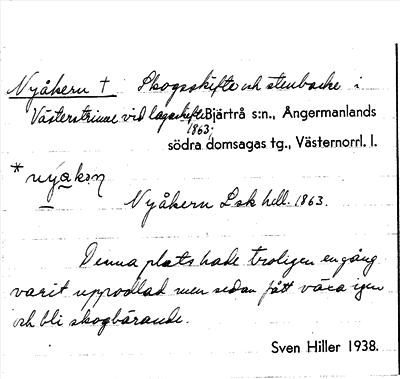 Nyåkern † Skogsskifte och stenbacke i
Västerstrinne vid lagaskifte Bjärtrå s:n., Ångermanlands
1863. södra domsagas tg., Västernorrl. l.
* nyakəṇ
Nyåkern Lsk hdl. 1863.
Denna plats hade troligen en gång
varit uppodlad men sedan fått växa igen
och bli skogbärande.
Sven Hiller 1938.